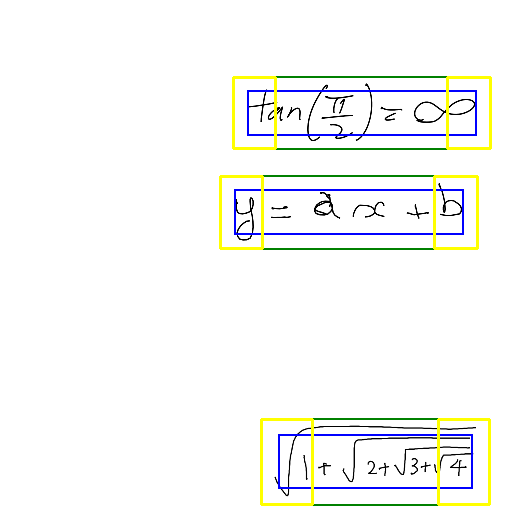 tan(π/2) = ∞
y = a x + b
√(1+√(2+√(3+√4)))